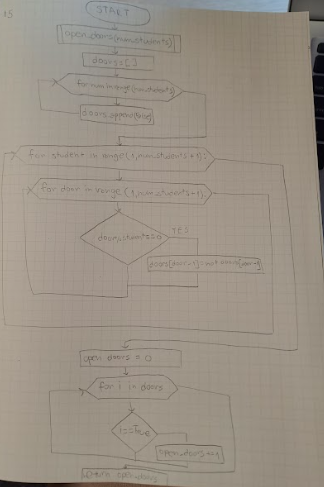 START
open_doors(num_students)
doors=[]
for num in range(num_students)
doors.append(False)
for student in range(1,num_students+1):
for door in range(1,num_students+1):
door%student==0
YES
doors[door-1]=not doors[door-1]
open_doors = 0
for i in doors
i==True
open_doors+=1
return open_doors